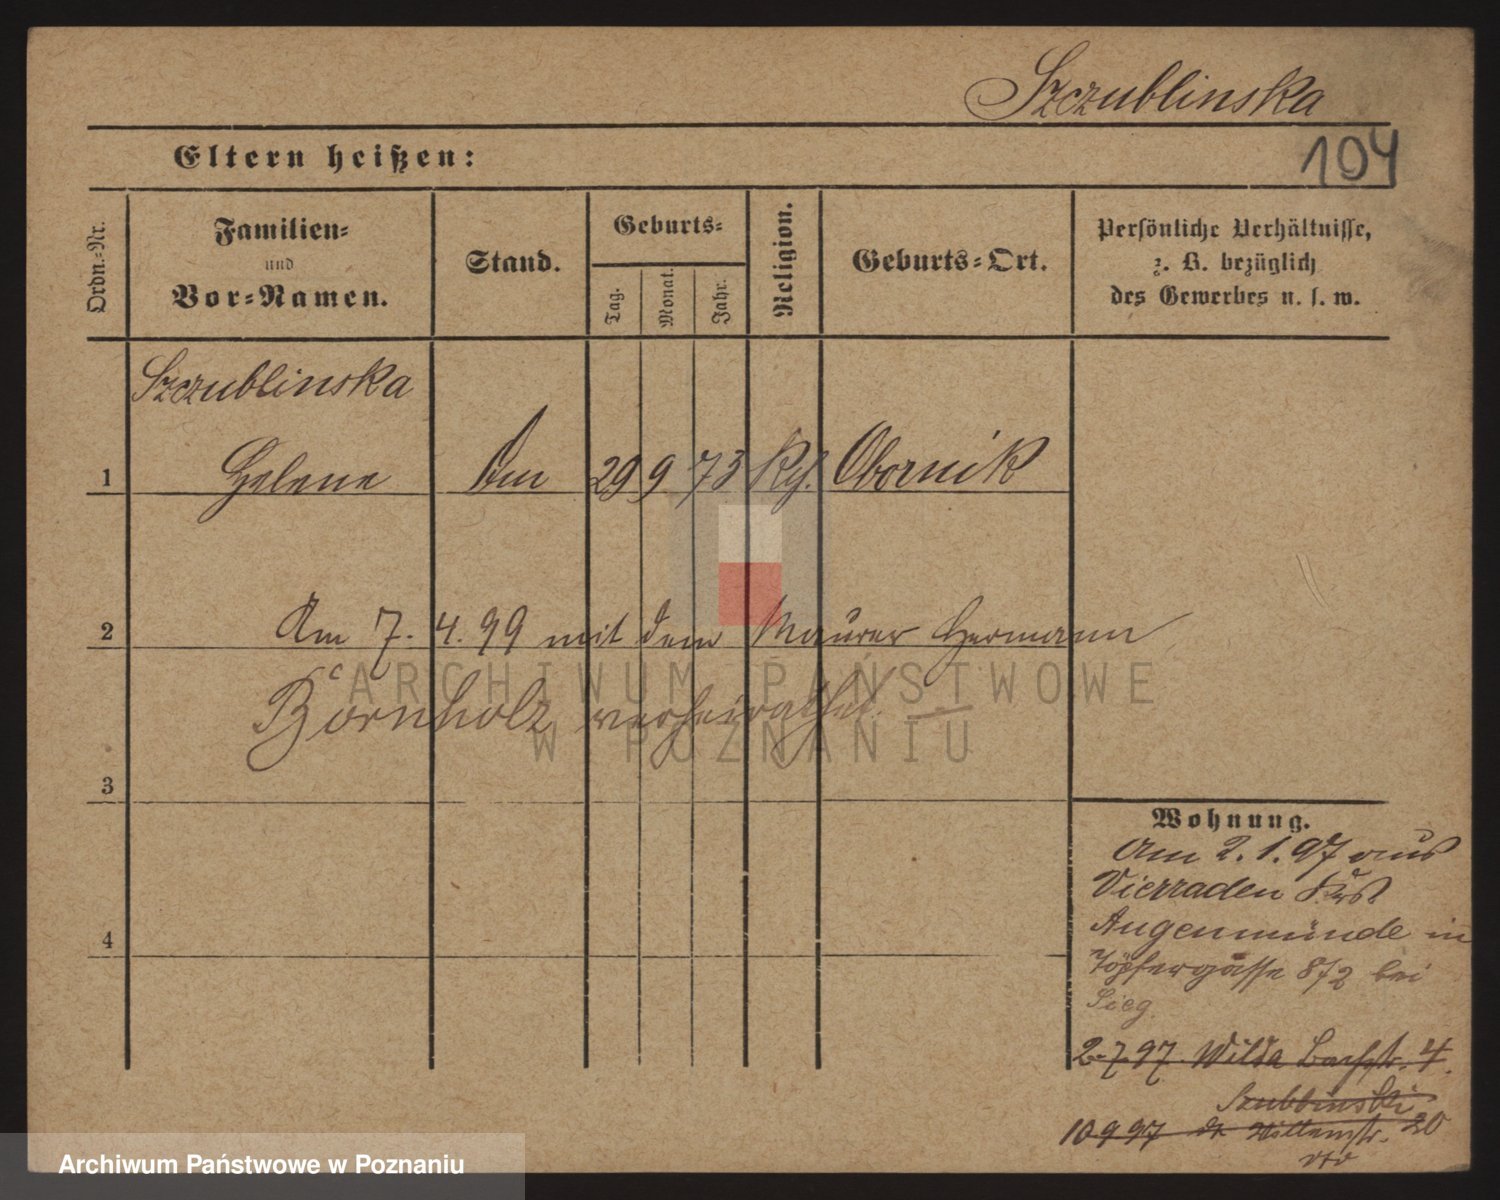 Szczublinska
104
Eltern heißen:
Ordn.-Nr.
Familien-
und
Vor-Namen.
Stand.
Geburts-
Tag.
Monat.
Jahr.
Religion.
Geburts-Ort.
Persönliche Verhältnisse,
z. B. bezüglich
des Gewerbes u. s. w.
Szczublinska
1 Helene 29 9 73 Obornik
2 Am 7. 4. 99 mit dem Maurer Hermann
Börnholz verheirathet.
3
4
Wohnung.
Am 2. 1. 97 aus
Vierraden
Augenmünde in
Töpfergasse 8/2 bei
Sieg
2.7.97. Wilda Bachstr. 4.
10 9 97 20
ARCHIWUM PAŃSTWOWE
W POZNANIU
Archiwum Państwowe w Poznaniu